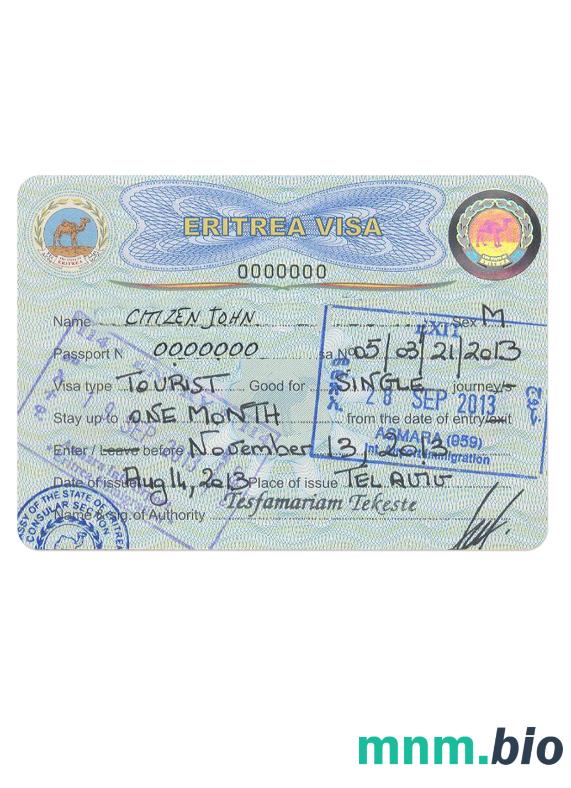 ERITREA VISA
0000000
Name CITIZEN JOHN Sex M
Passport N 0000000 sa Nº 05/03/21/2013
Visa type TOURIST Good for SINGLE journey/s
Stay up to ONE MONTH from the date of entry/exit
Enter / Leave before November 13, 2013
Date of issue Aug 14, 2013 Place of issue TEL AVIV
Name & sig.of Authority Tesfamariam Tekeste
EXIT
28 SEP 2013
ASMARA (959)
Immigration
خروج
CONSULAR SECTION
mnm.bio